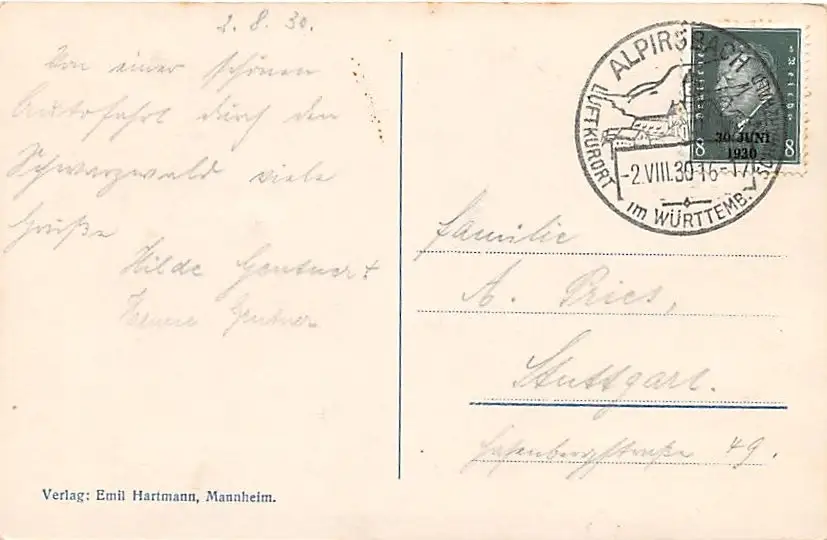 2. 8. 30.
Von einer schönen
Autofahrt durch den
Schwarzwald viele
Grüße
Hilde Gentner +
Gentner
Verlag: Emil Hartmann, Mannheim.
ALPIRSBACH
LUFTKURORT
-2.VIII.30 16-17
im WÜRTTEMB.
SCHWARZWALD
Deutsches Reich
30. JUNI
1930
8 8
Familie
A. Pries,
Stuttgart.
Hasenbergstraße 49.